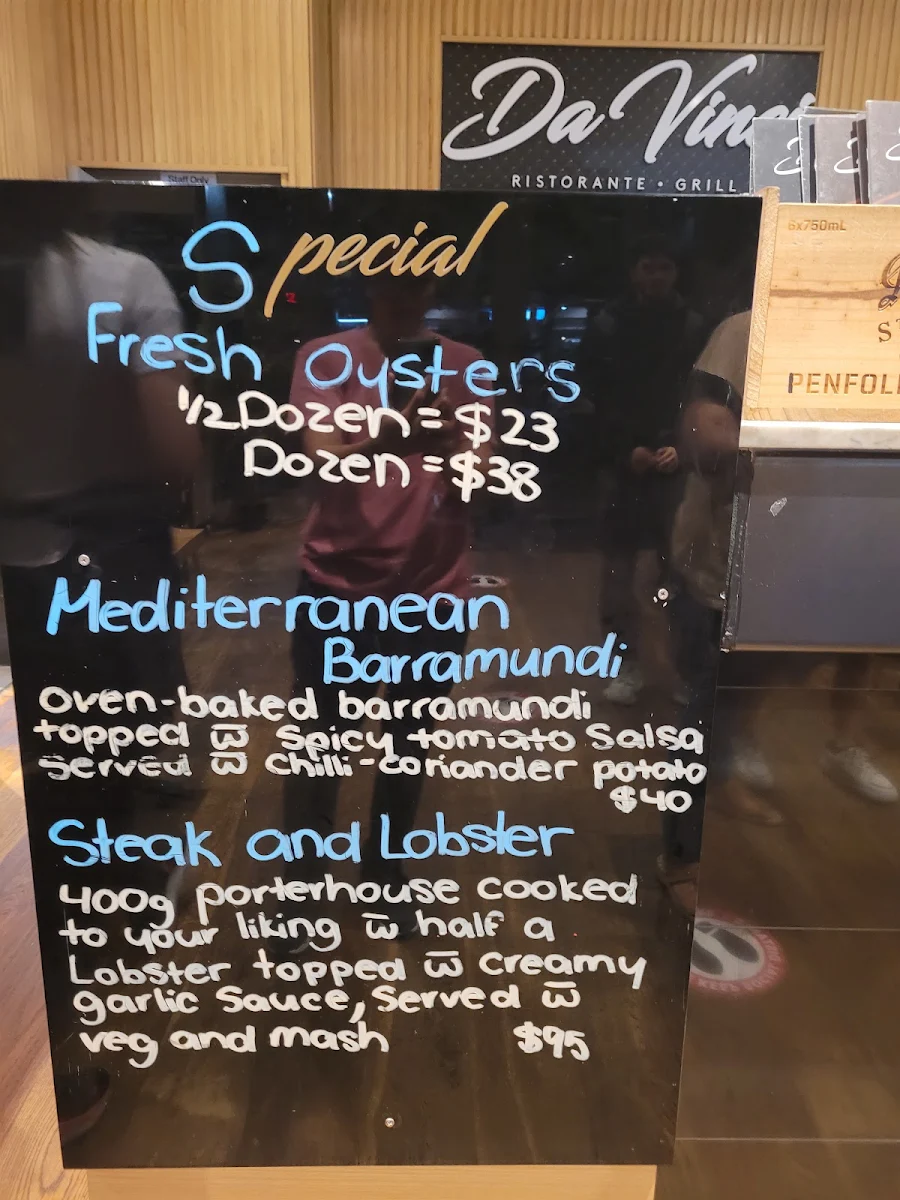 Da Vinci
RISTORANTE • GRILL
Staff Only
Special
Fresh Oysters
1/2 Dozen = $23
Dozen = $38
Mediterranean
Barramundi
Oven-baked barramundi
topped w̅ Spicy tomato Salsa
Served w̅ Chilli-coriander potato
$40
Steak and Lobster
400g porterhouse cooked
to your liking w̅ half a
Lobster topped w̅ creamy
garlic Sauce, Served w̅
veg and mash $95
6x750mL
PENFOL